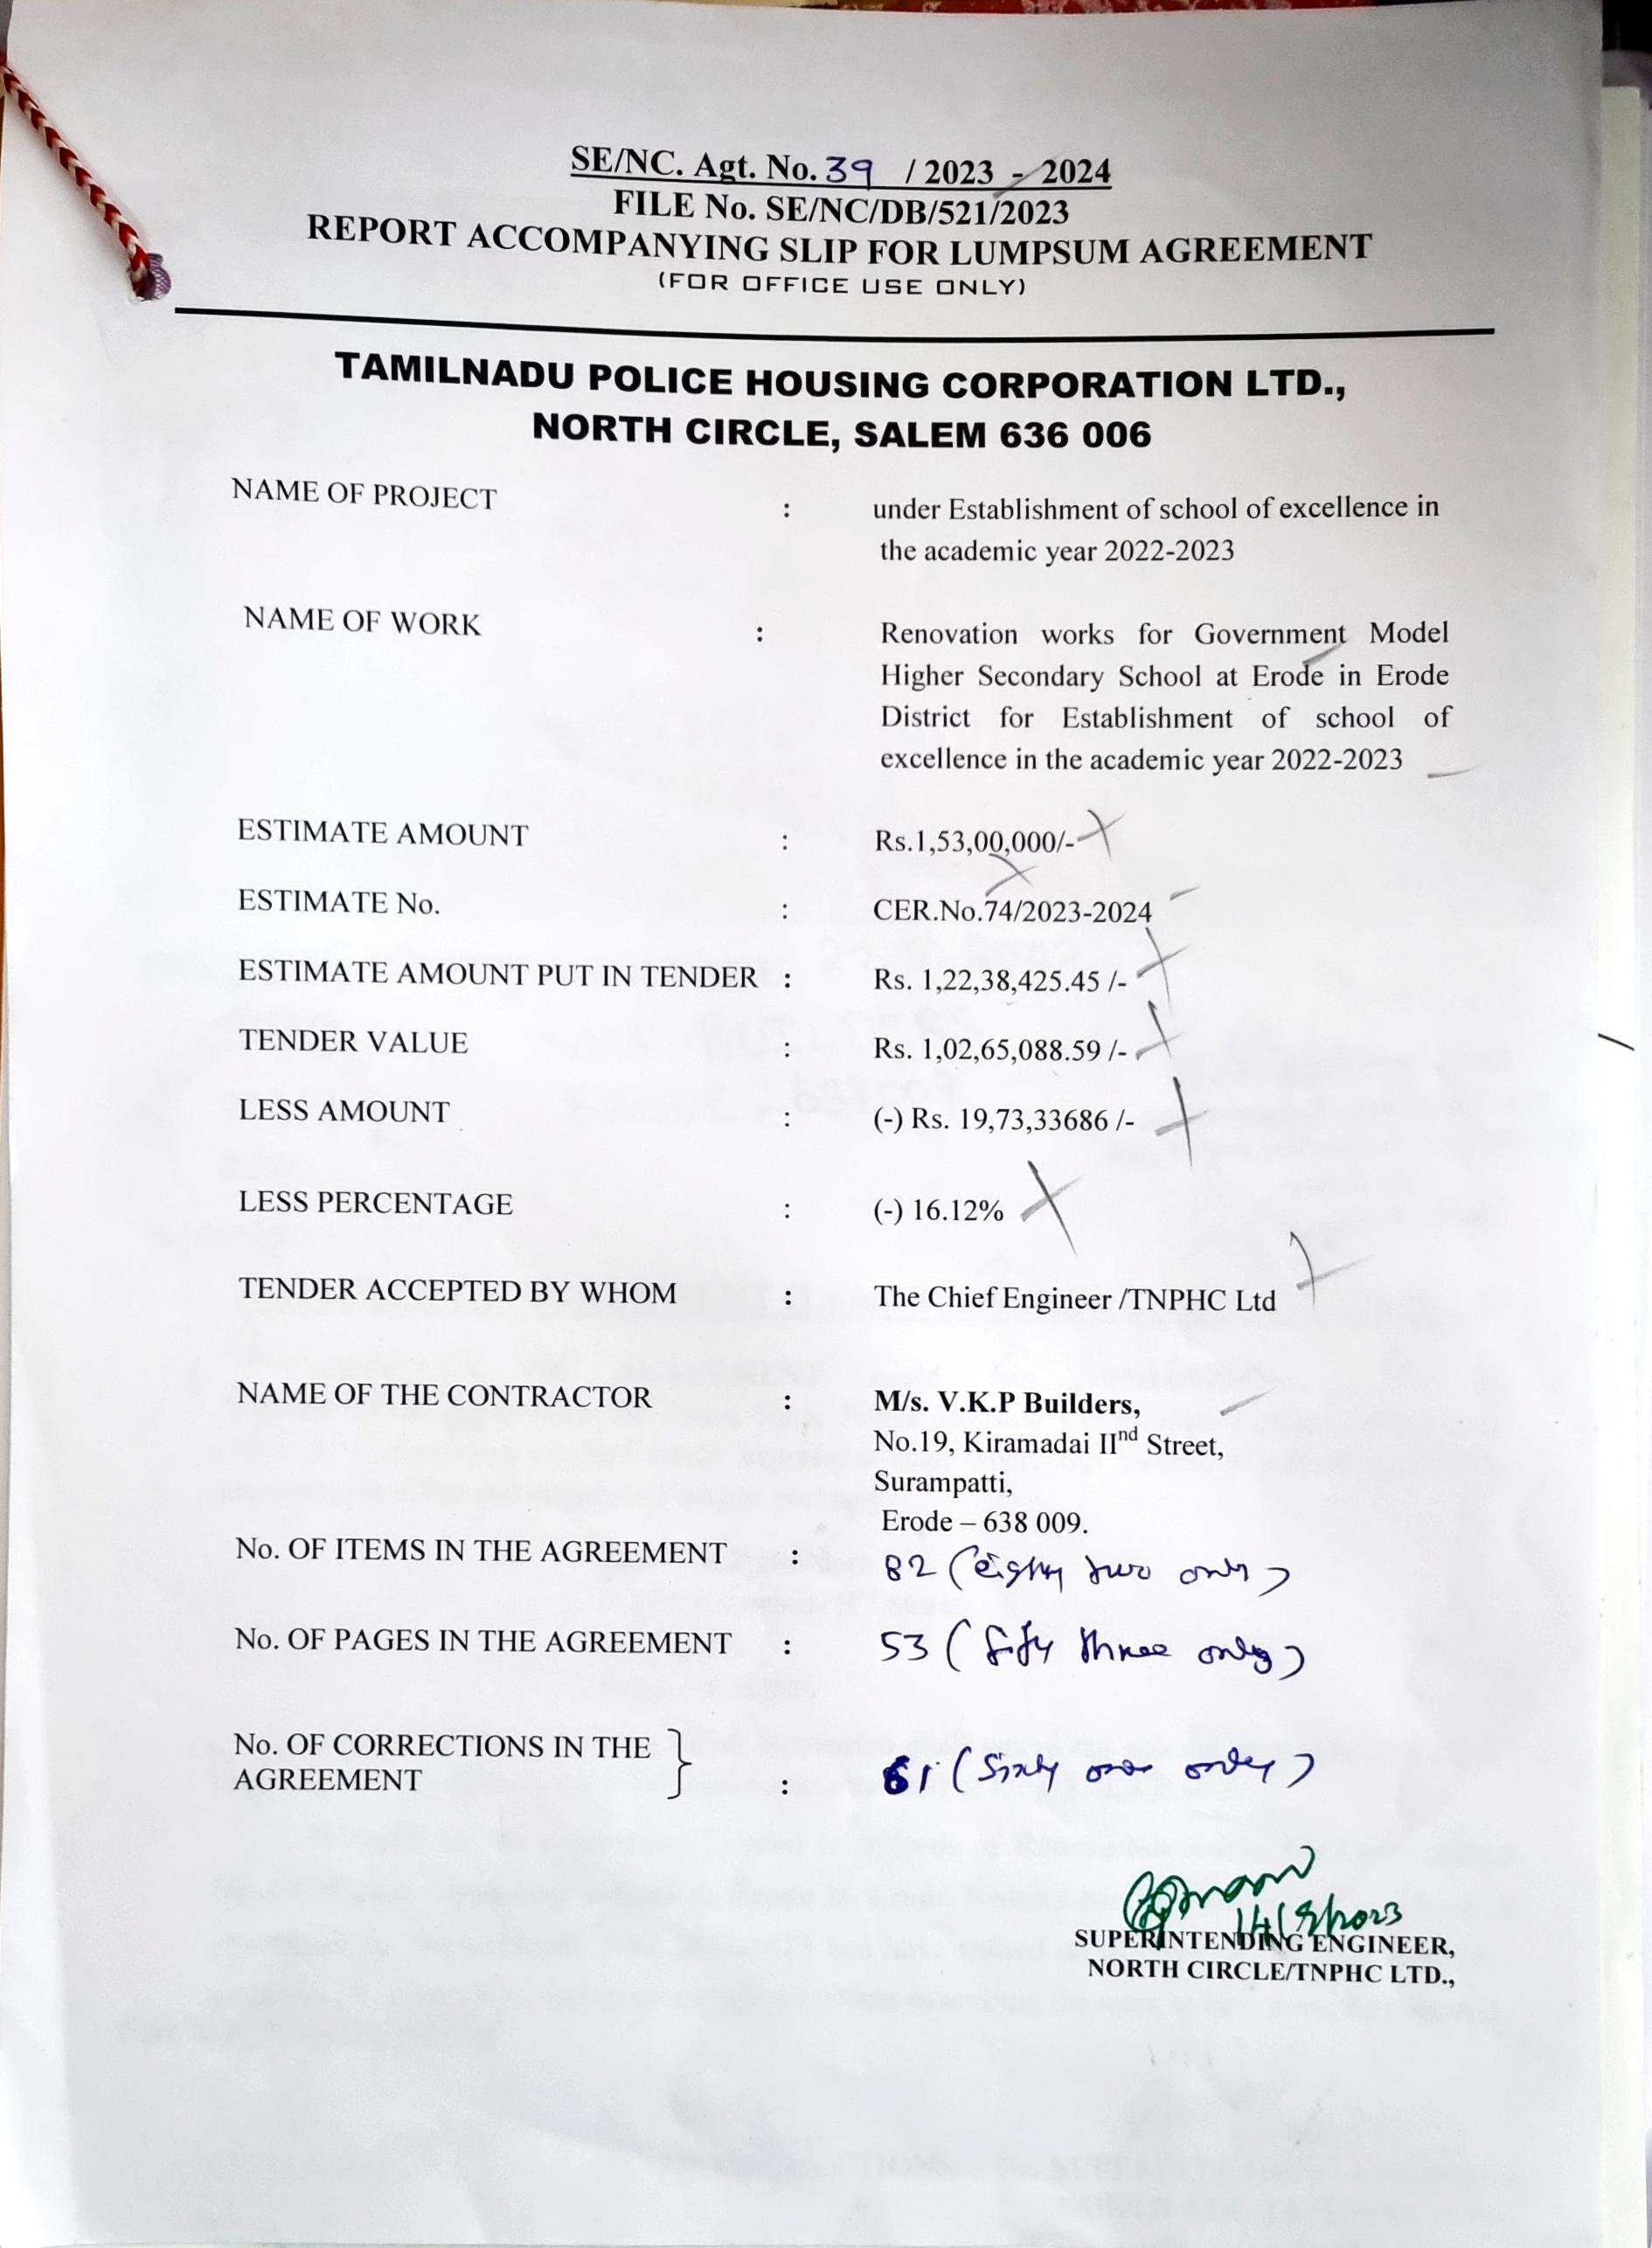 SE/NC. Agt. No. 39 / 2023 - 2024
FILE No. SE/NC/DB/521/2023
REPORT ACCOMPANYING SLIP FOR LUMPSUM AGREEMENT
(FOR OFFICE USE ONLY)
TAMILNADU POLICE HOUSING CORPORATION LTD.,
NORTH CIRCLE, SALEM 636 006
NAME OF PROJECT : under Establishment of school of excellence in
the academic year 2022-2023
NAME OF WORK : Renovation works for Government Model
Higher Secondary School at Erode in Erode
District for Establishment of school of
excellence in the academic year 2022-2023
ESTIMATE AMOUNT : Rs.1,53,00,000/-
ESTIMATE No. : CER.No.74/2023-2024
ESTIMATE AMOUNT PUT IN TENDER : Rs. 1,22,38,425.45 /-
TENDER VALUE : Rs. 1,02,65,088.59 /-
LESS AMOUNT : (-) Rs. 19,73,33686 /-
LESS PERCENTAGE : (-) 16.12%
TENDER ACCEPTED BY WHOM : The Chief Engineer /TNPHC Ltd
NAME OF THE CONTRACTOR : M/s. V.K.P Builders,
No.19, Kiramadai IInd Street,
Surampatti,
Erode – 638 009.
No. OF ITEMS IN THE AGREEMENT : 82 (eighty two only)
No. OF PAGES IN THE AGREEMENT : 53 (fifty three only)
No. OF CORRECTIONS IN THE
AGREEMENT : 61 (Sixty one only)
14/8/2023
SUPERINTENDING ENGINEER,
NORTH CIRCLE/TNPHC LTD.,